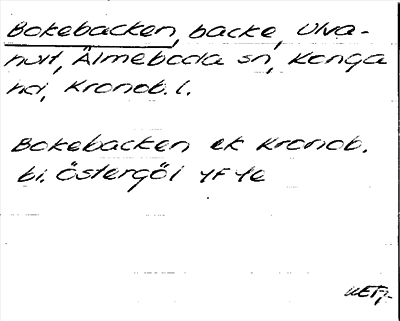 Bokebacken, backe, Ulva-
hult, Älmeboda sn, Konga
hd, Kronob. l.
Bokebacken ek Kronob.
bl. Östergöl 4F4e